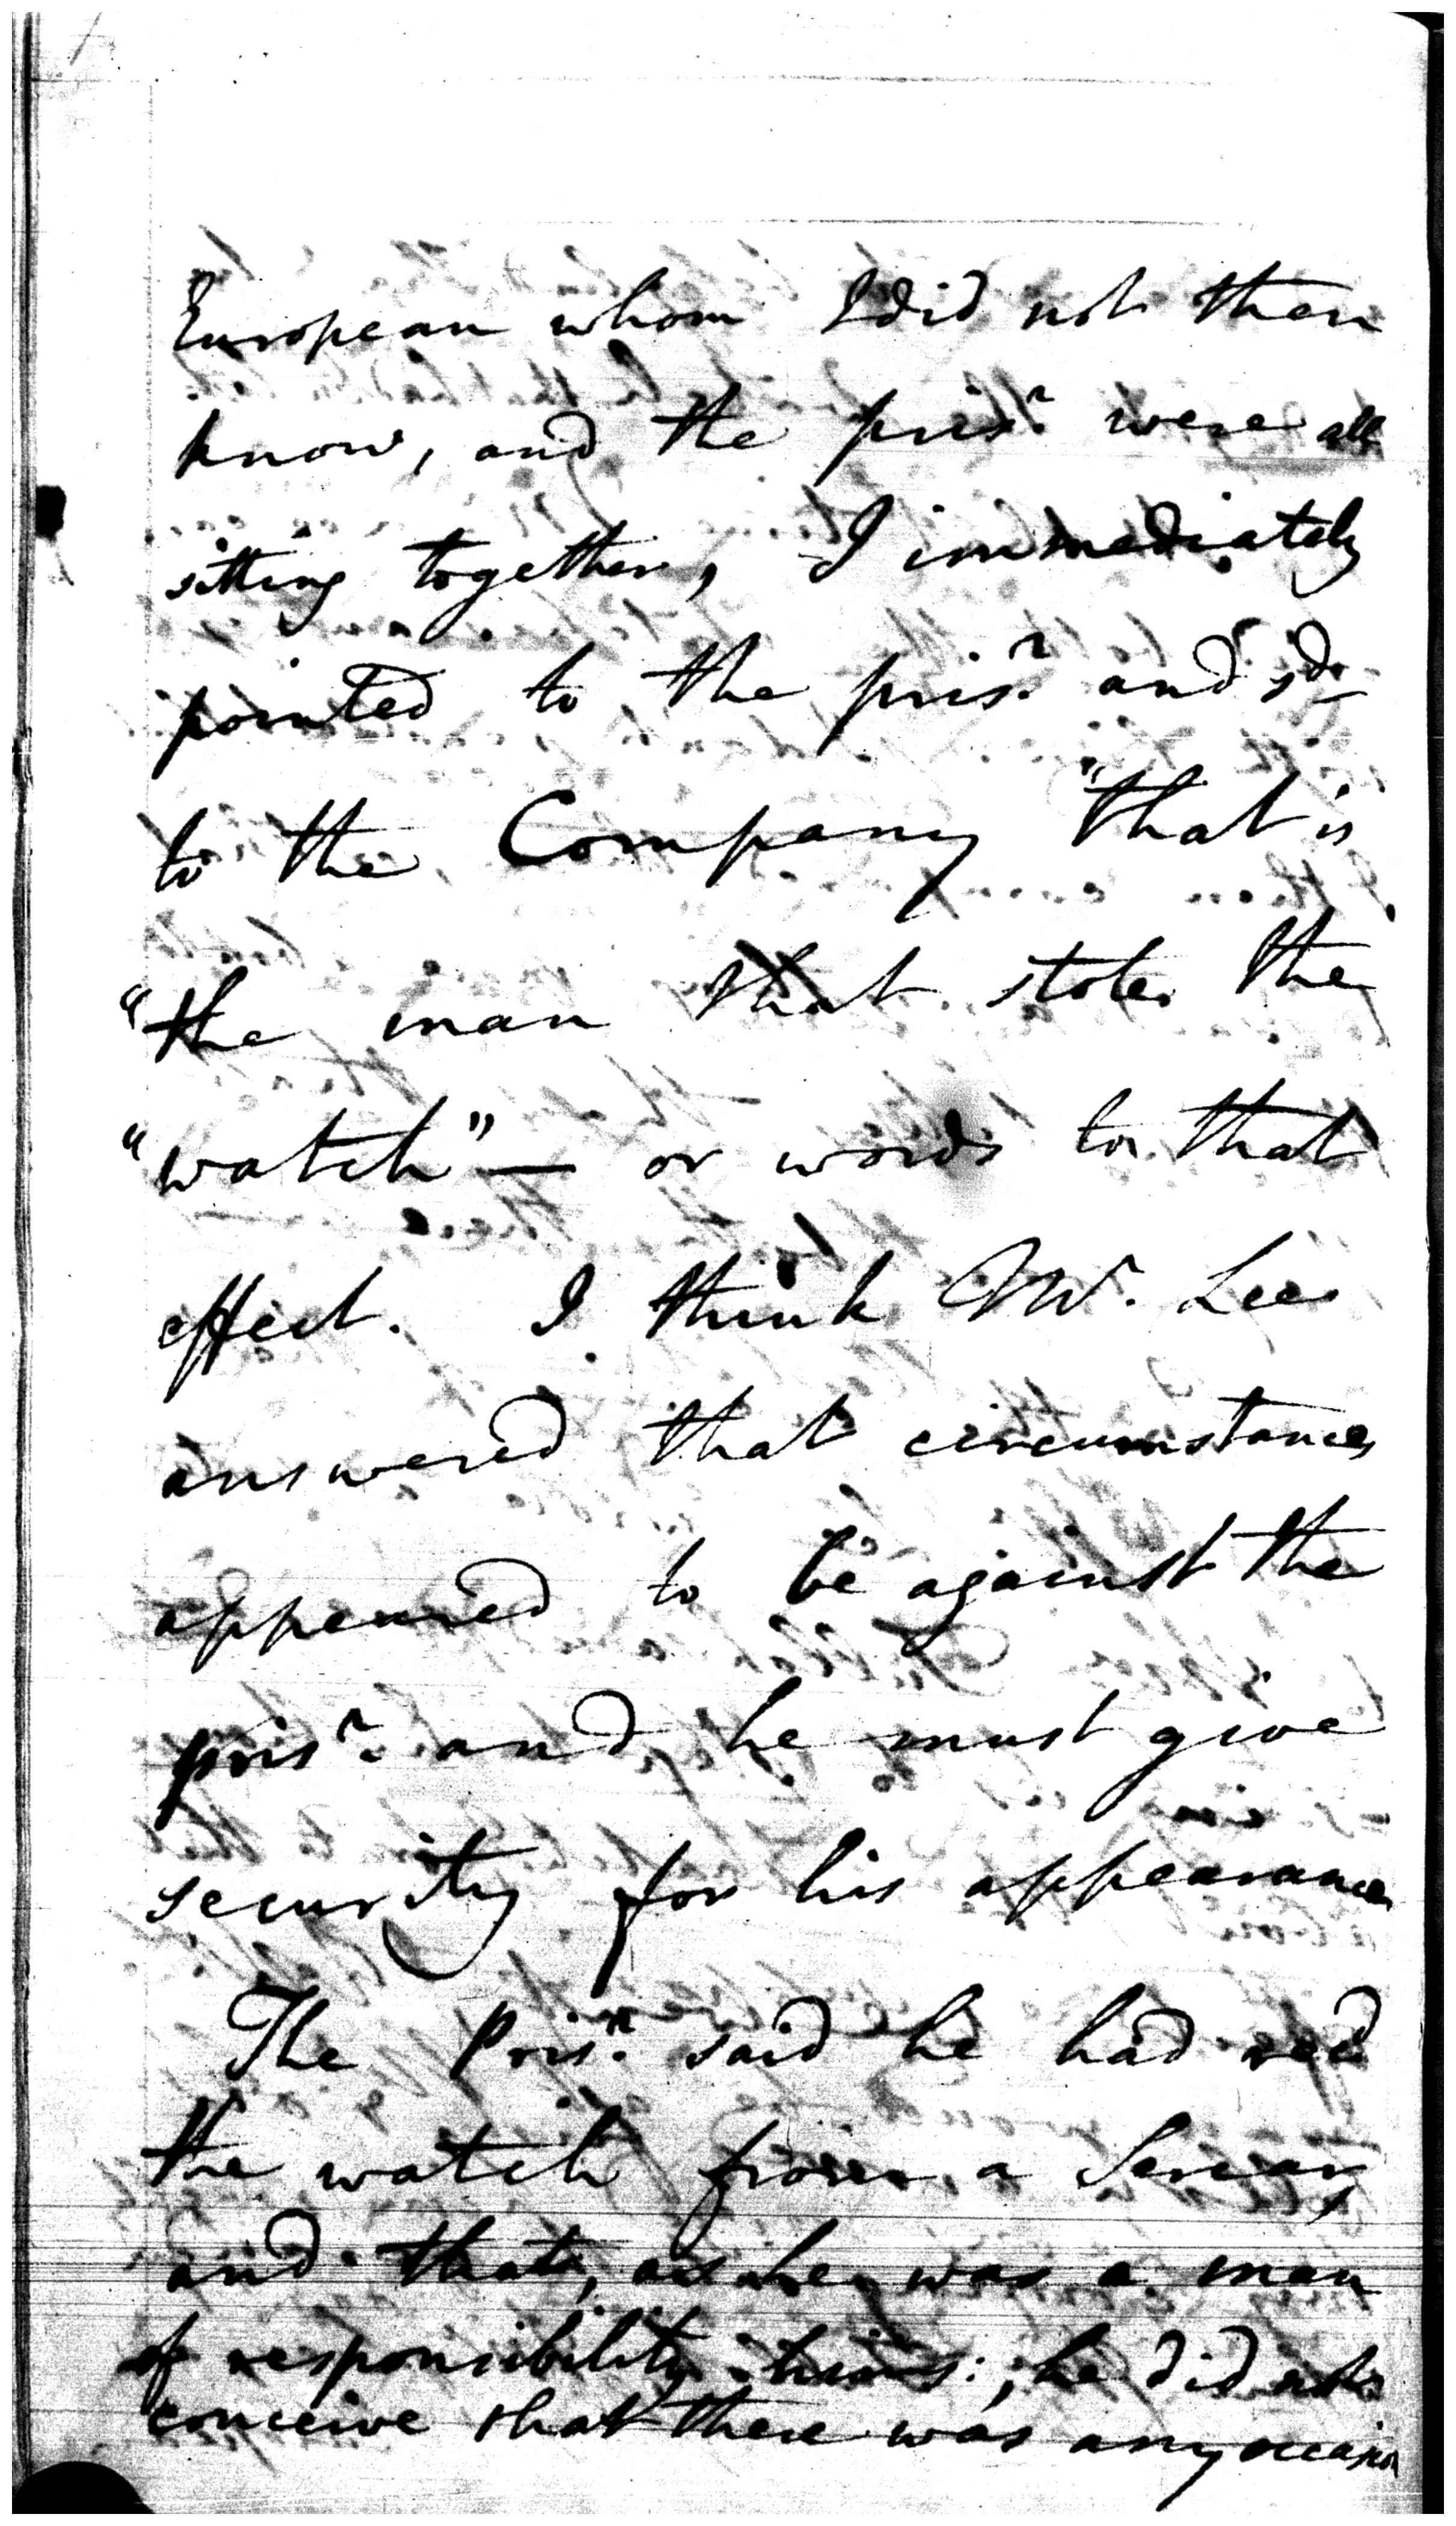 European whom I did not then
know, and the prisr. were all
sitting together, I immediately
pointed to the prisr. and sd.
to the Company "that is
"the man that stole the
"watch" — or words to that
effect. I think Mr. Lee
answered that circumstances
appeared to be against the
prisr. and he must give
security for his appearance
The Prisr. said he had recd
the watch from a
and that, as he was a man
of responsibility ; he did not
conceive that there was any occasion